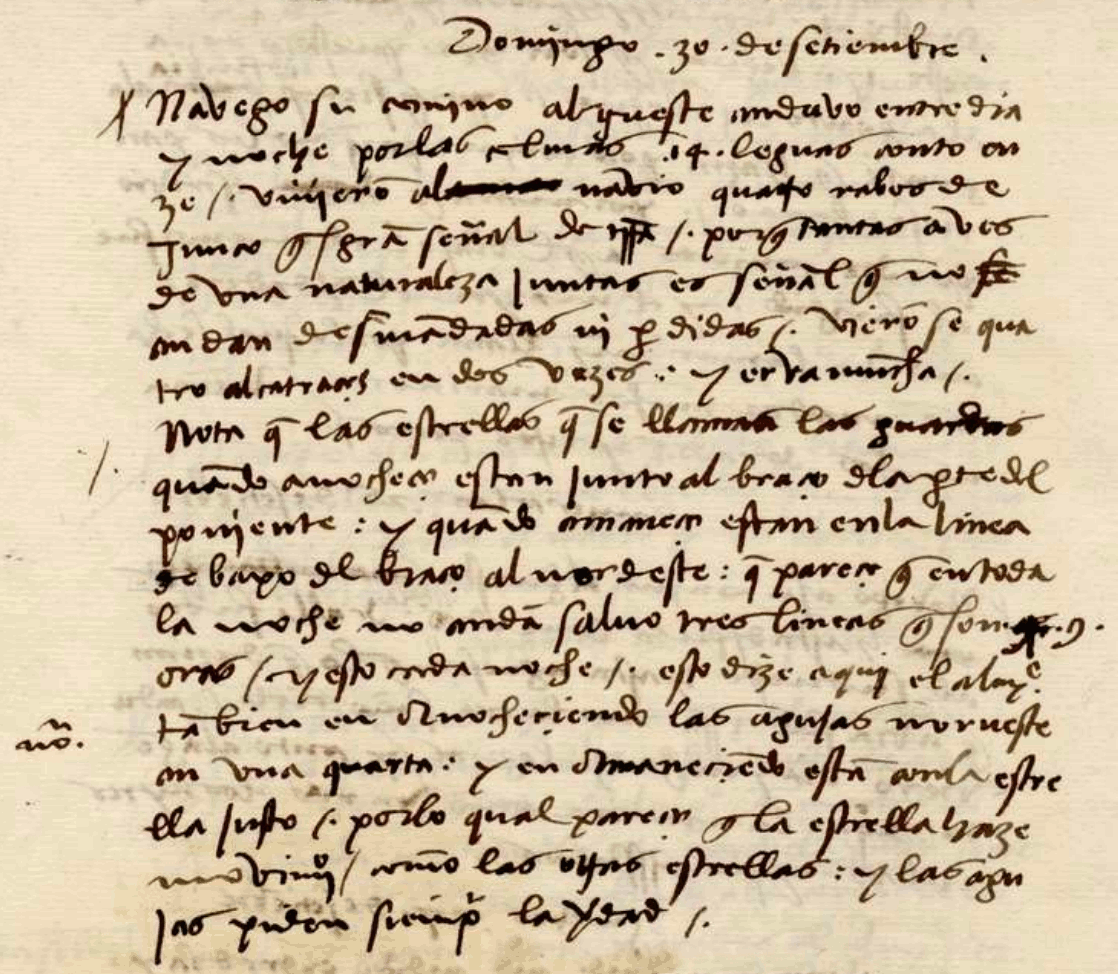 Domingo . 30 . de setiembre .
Navego su camino al gueste anduvo entre dia
y noche por las calmas .14. leguas conto on
ze /. vinjerō al navio quatro rabos de
Junco q̃ es grā señal de trr̄a /. porq̃ tantas aves
de una naturaleza Juntas es señal q̃ no se
andan desmādadas nj p̱didas /. vierōse qua
tro alcatraçes en dos vezes : y erva mucha /.
Nota q̃ las estrellas q̃ se llaman las guardas
quādo anochece estan Junto al braço dla p̱te dl
ponjente : y quādo amanece estan en la linea
debaxo dl braço al nordeste : q̃ parece q̃ en toda
la noche no andā salvo tres lineas q̃ son .9.
oras / y esto cada noche /. esto dize aqui el almyᵉ.
tābien en anocheciendo las agujas norueste
nō.
an una quarta : y en amaneciēdo estā con la estre
lla Justo /. por lo qual parece q̃ la estrella haze
movimjº / como las otras estrellas : y las agu
Jas piden siemp̃ la ṽdad /.